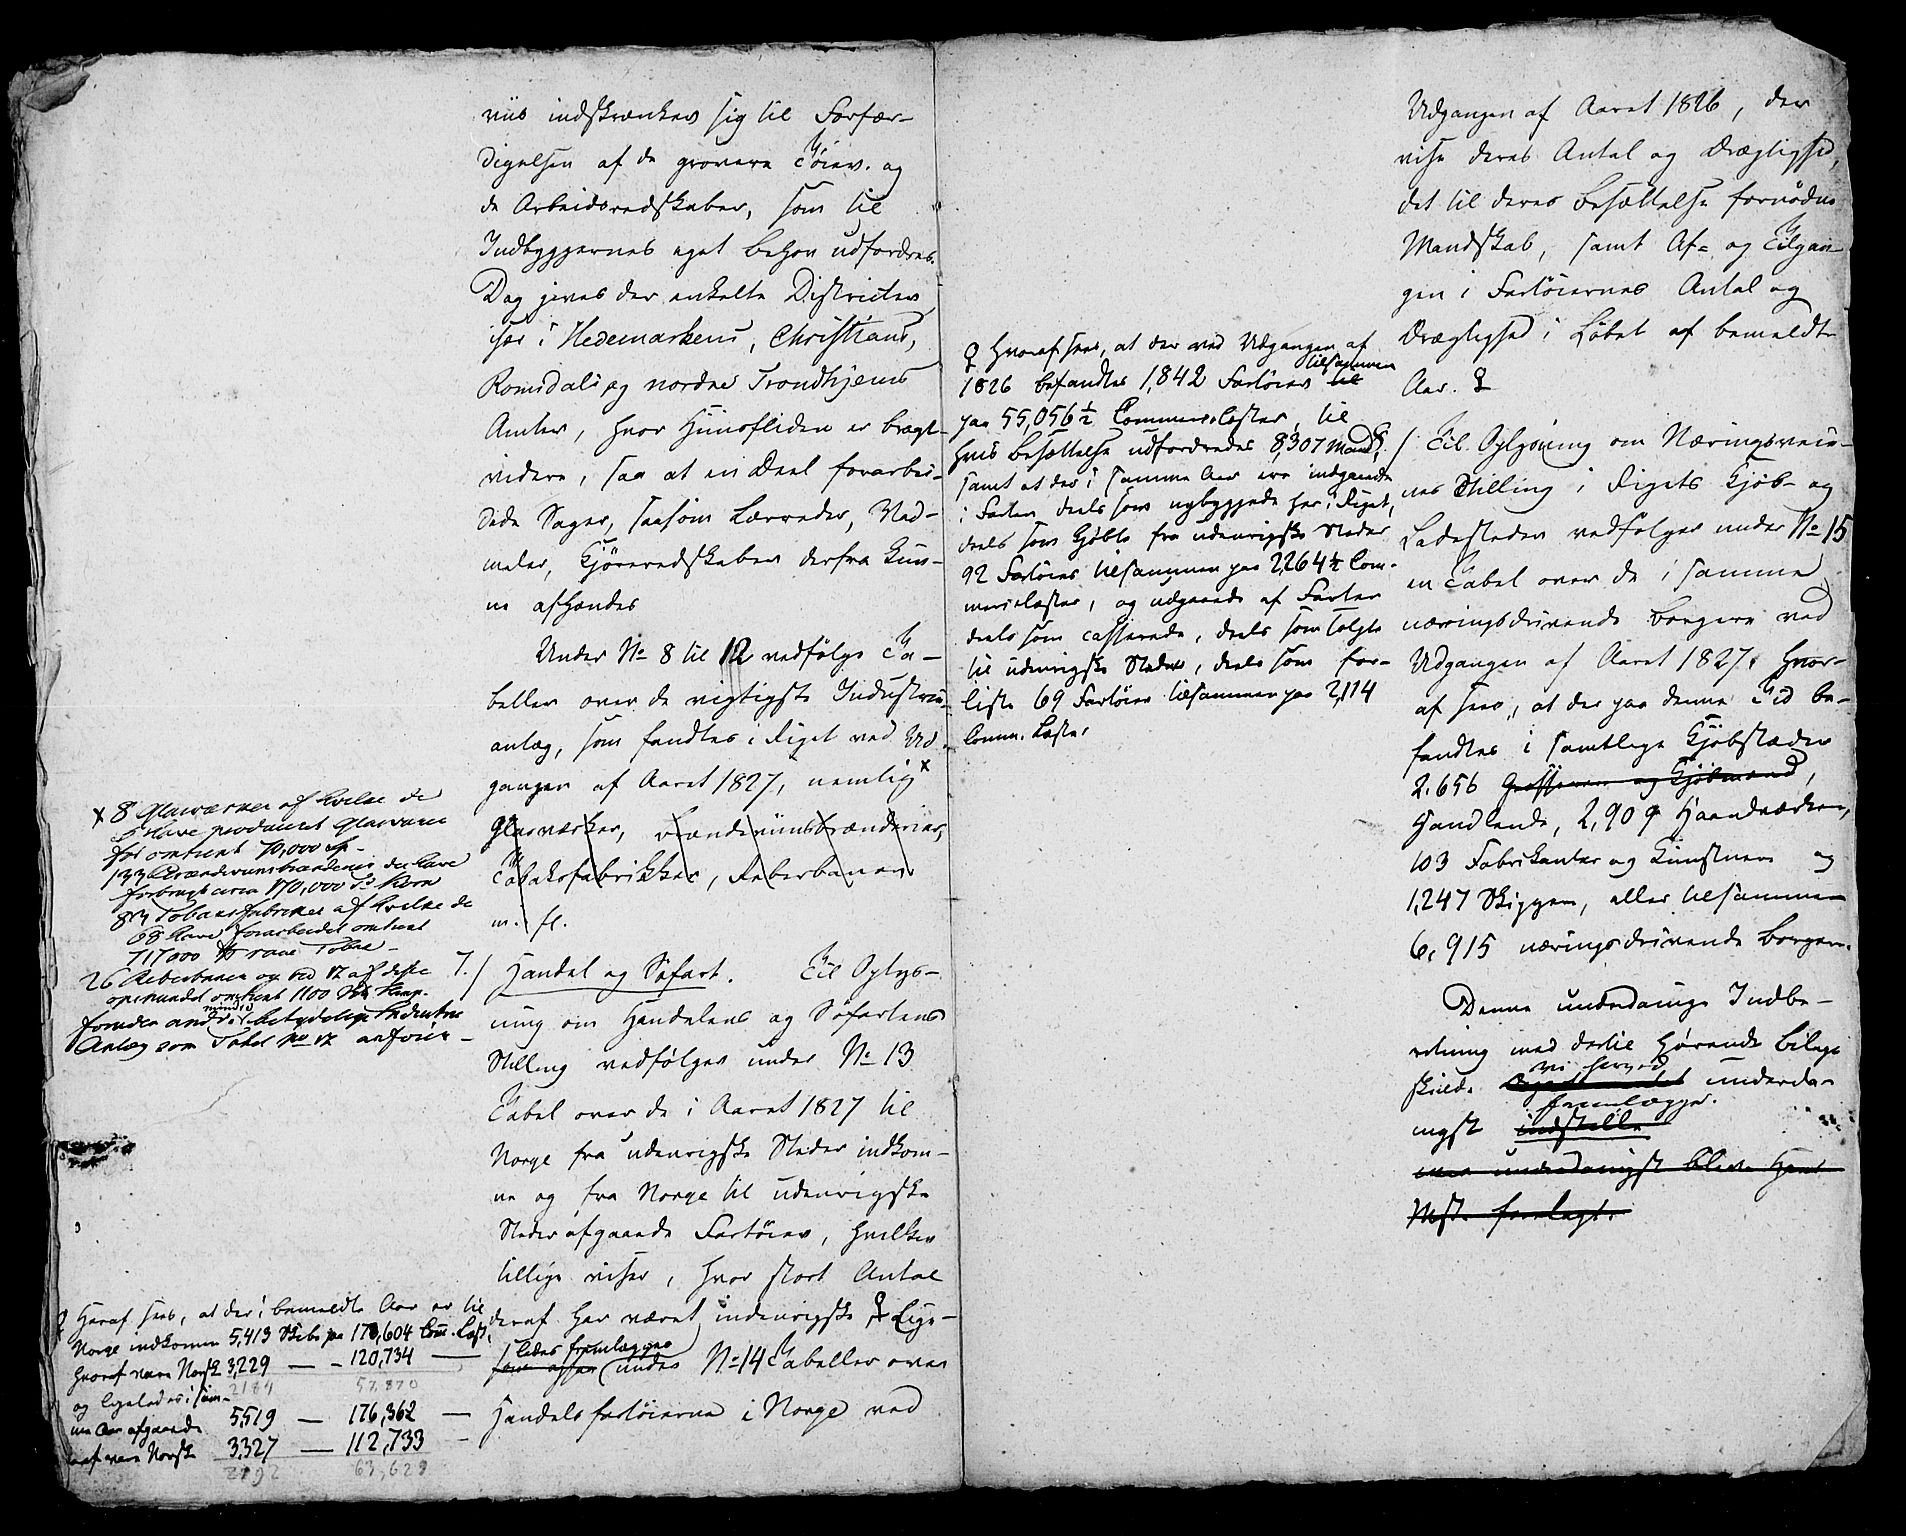 viis indskrænker sig til Forfær-
digelsen af de grovere Töier og
de Arbeidsredskaber, som til
Indbyggernes eget Behov udfordres.
Dog gives der enkelte Districter
især i Hedemarkens, Christians,
Romsdals og nordre Trondhjems
Amter, hvor Huusfliden er bragt
videre, saa at en Deel forarbei-
dede Sager, saasom Lærreder, Vad-
meler, Kjöreredskaber derfra kun-
ne afhændes
Under No 8 til 12 vedfølge Ta-
beller over de vigtigste Industrie-
anlæg, som fandtes i Riget ved Ud-
gangen af Aaret 1827, nemlig x
Glasværker, Brændeviinsbrænderier,
Tobaksfabrikker, Reberbaner
m. fl.
x 8 Glasværker af hvilke de
5 have produceret Glasvarer
for omtrent 70,000 Sp.
133 Brændeviinsbrænderier der have
forbrugt circa 170,000 Tr Korn
84 Tobaksfabriker af hvilke de
68 have forarbeidet omtrent
717000 ℔ raae Tobak
26 Reberbaner og ved 12 af disse
opspundet omtrent 1100 Hamp.
foruden andre mindre betydelige Industrie
Anlæg som Tabel No 12 anförer
7. / Handel og Søfart. Til Oplys-
ning om Handelens og Søfartens
Stilling vedfölger under No 13
Tabel over de i Aaret 1827 til
Norge fra udenrigske Steder indkom-
ne og fra Norge til udenrigske
Steder afgaaede Fartöier, hvilken
tillige viser, hvor stort Antal
deraf har været indenrigske ♀ Lige-
ledes fremlægges
under No 14 Tabeller over
Handelsfartöierne i Norge ved
♀ Heraf sees, at der i bemeldte Aar er til
Norge indkommen 5,413 Skibe paa 178,604 Com. Læst.
hvoraf vare Norsk 3,229 — — 120,734 —
2184 57,870
og ligeledes i sam-
me Aar afgaaede 5,519 — 176,362 —
hvoraf vare Norsk 3,327 — 112,733 —
2192 63,629
♀ Hvoraf sees, at der ved Udgangen af
1826 befandtes 1,842 Fartöier tilsammen
paa 55,056 ½ Commercelæster, til
hvis Besættelse udfordredes 8,307 Mand;
samt at der i samme Aar ere indgaaede
i Farten deels som nybyggede her i Riget,
deels som Kjöbte fra udenrigske Steder
92 Fartöier tilsammen paa 2,264 ½ Com-
mercelæster, og udgaaede af Farten
deels som casserede, deels som solgte
til udenrigske Steder, deels som for-
liste 69 Fartöier tilsammen paa 2,114
Comm. Læster
Udgangen af Aaret 1826, der
vise deres Antal og Drægtighed,
det til deres Besættelse fornödne
Mandskab, samt Af- og Tilgan-
gen i Fartöiernes Antal og
Drægtighed i Löbet af bemeldte
Aar. ♀
/ Til Oplysning om Næringsveie-
nes Stilling i Rigets Kjöb- og
Ladesteder vedfølger under No 15
en Tabel over de i samme
næringsdrivende Borgere ved
Udgangen af Aaret 1827, hvor-
af sees, at der paa denne Tid be-
fandtes i samtlige Kjöbstæder
2,656 Grosserere og Kjöbmænd,
Handlende, 2,909 Haandværkere,
103 Fabrikanter og Kunstnere og
1,247 Skippere, eller tilsammen
6,915 næringsdrivende Borgere.
Denne underdanige Indbe-
retning med dertil hørende Bilage
skulde vi herved underda-
nigst indstille fremlægge.
maa underdanigst blive
forelagt.